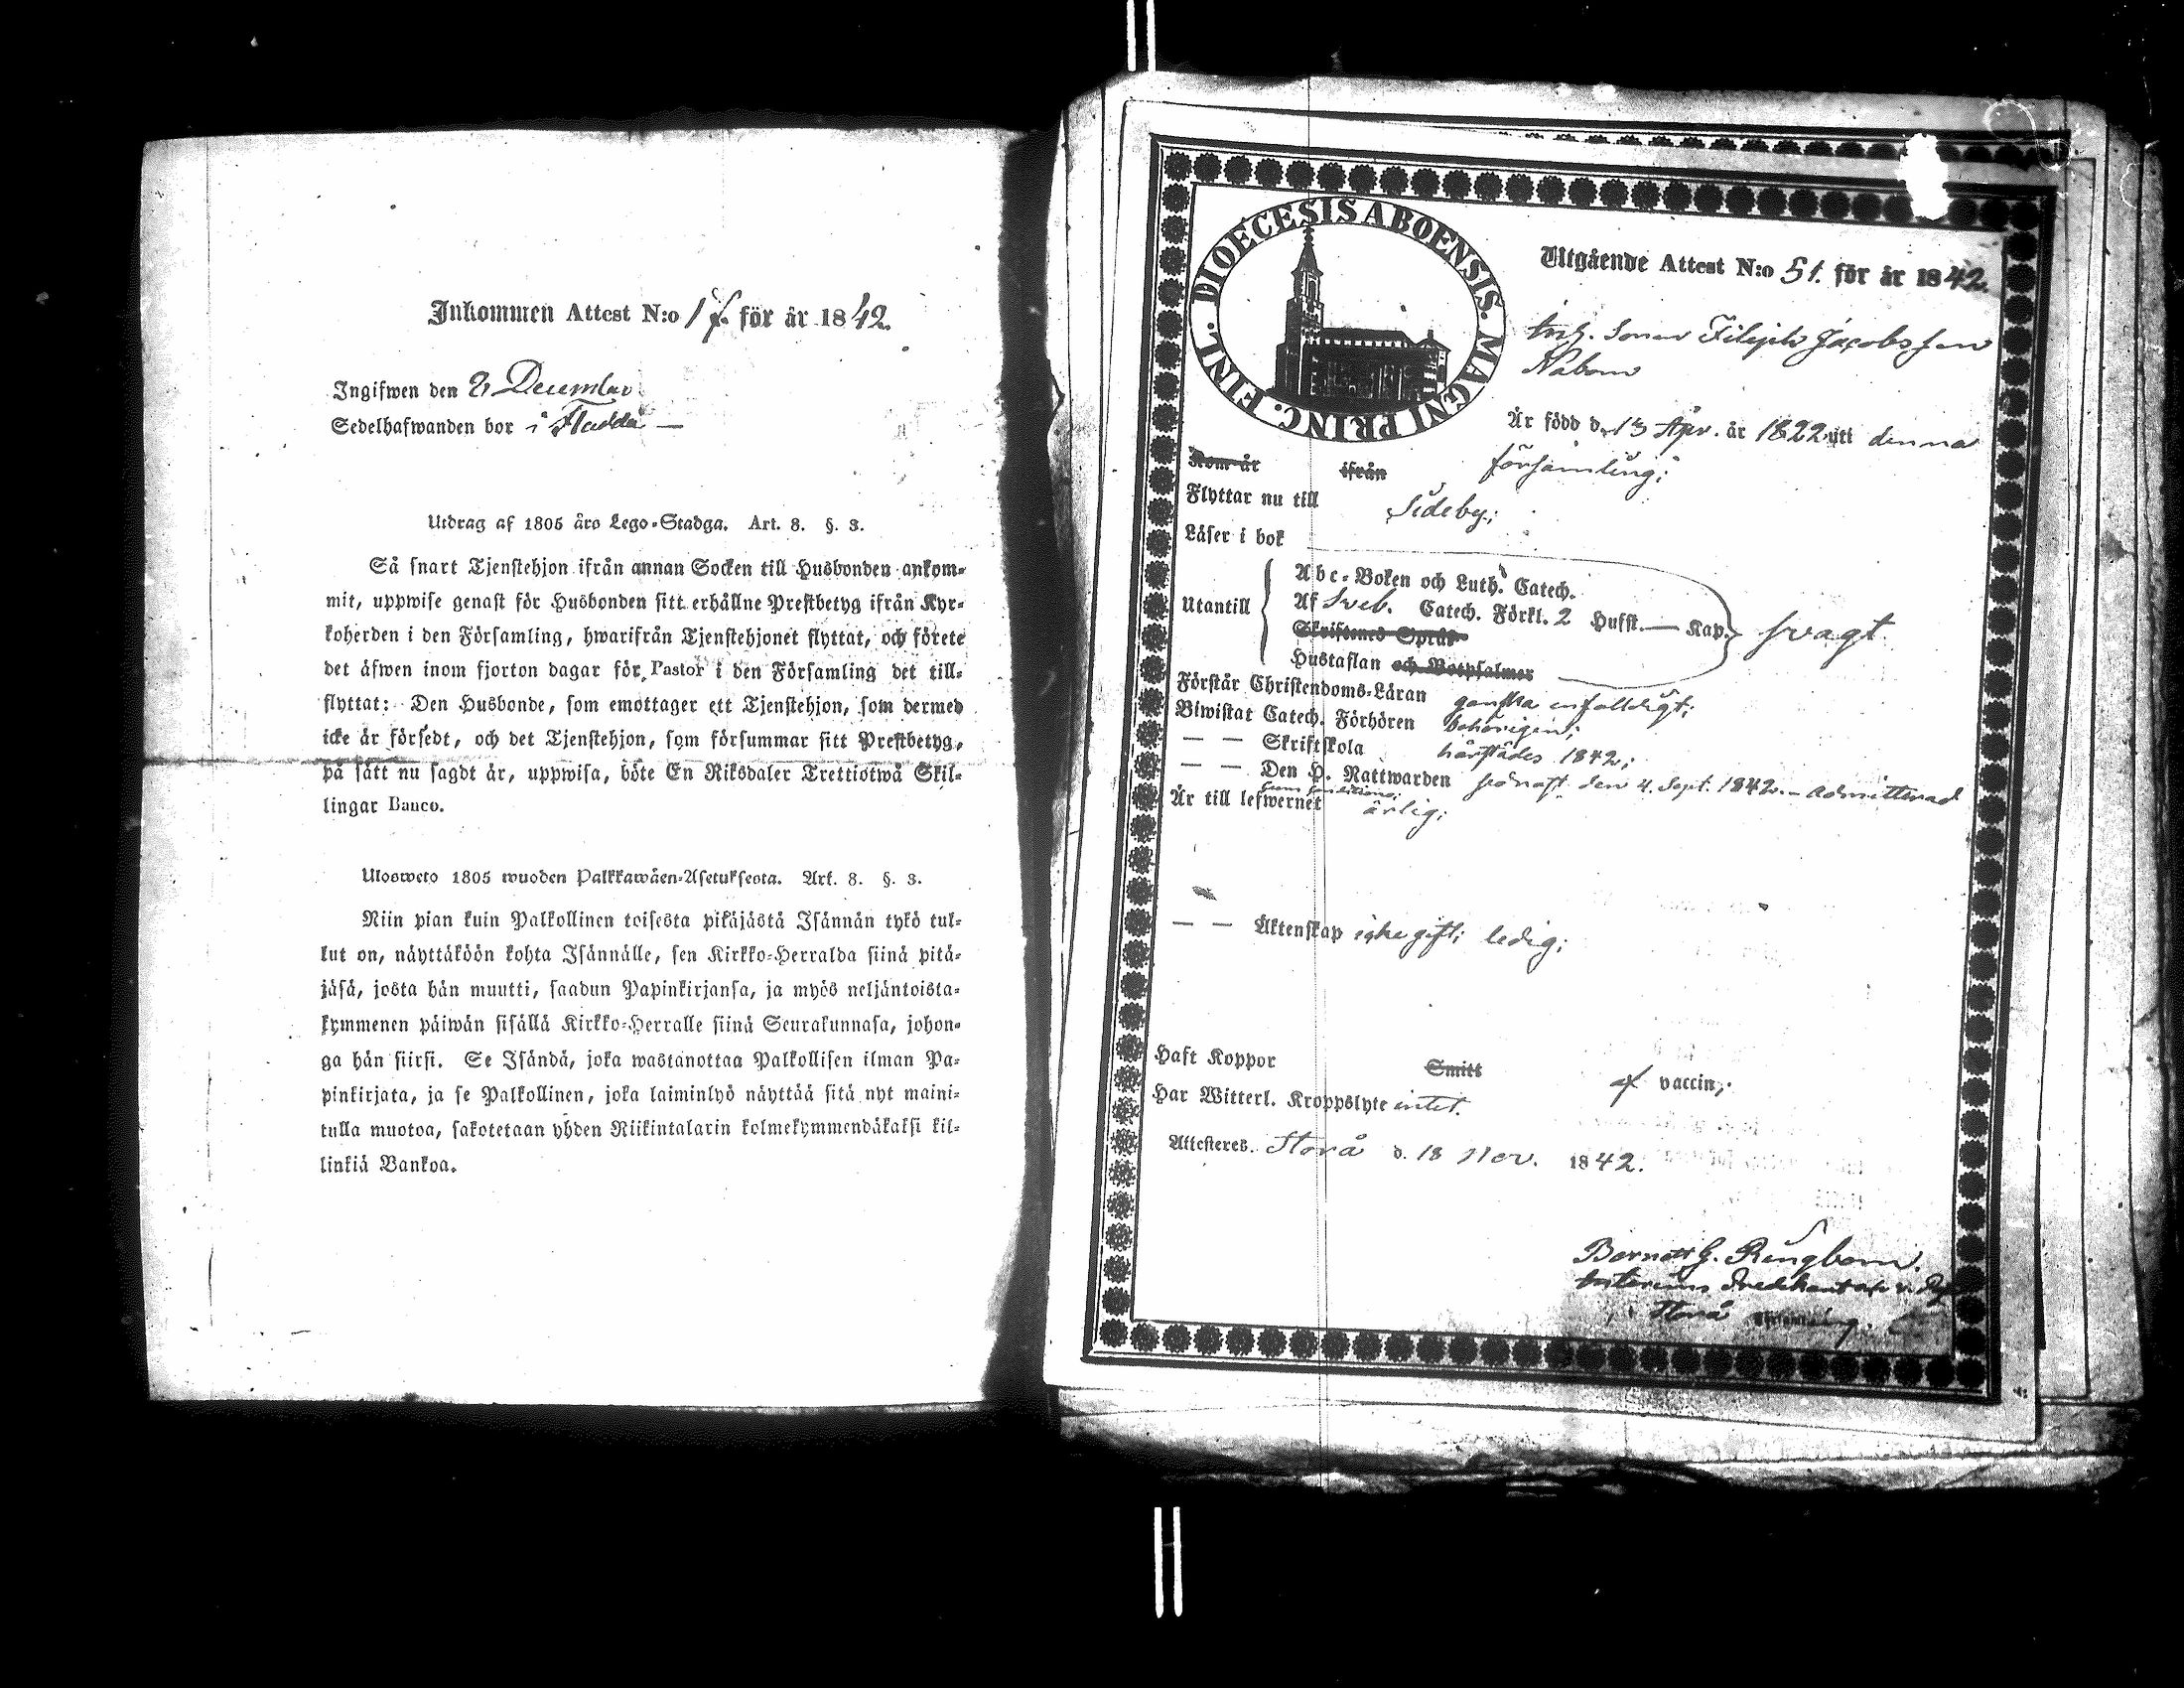 Inkommen Attest N:o 17. för år 1842.
Ingifwen den 2 December
Sedelhafwanden bor i Fladda —
Utdrag af 1805 års Lego-Stadga. Art. 8. §. 3.
Så snart Tjenstehjon ifrån annan Socken till Husbonden ankom-
mit, uppwise genast för Husbonden sitt erhållne Prestbetyg ifrån Kyr-
koherden i den Församling, hwarifrån Tjenstehjonet flyttat, och förete
det äfwen inom fjorton dagar för Pastor i den Församling det till-
flyttat: Den Husbonde, som emottager ett Tjenstehjon, som dermed
icke är försedt, och det Tjenstehjon, som försummar sitt Prestbetyg,
på sätt nu sagdt är, uppwisa, böte En Riksdaler Trettiotwå Skil-
lingar Banco.
Ulosweto 1805 wuoden Palkkawäen-Asetuksesta. Art. 8. §. 3.
Niin pian kuin Palkollinen toisesta pitäjästä Isännän tykö tul-
lut on, näyttäköön kohta Isännälle, sen Kirkko-Herralda siinä pitä-
jäsä, josta hän muutti, saadun Papinkirjansa, ja myös neljäntoista-
kymmenen päiwän sisällä Kirkko-Herralle siinä Seurakunnasa, johon-
ga hän siirsi. Se Isändä, joka wastanottaa Palkollisen ilman Pa-
pinkirjata, ja se Palkollinen, joka laiminlyö näyttää sitä nyt maini-
tulla muotoa, sakotetaan yhden Riikintalarin kolmekymmendäkaksi kil-
linkiä Bankoa.
DIOECESIS ABOENSIS. MAGNI PRINC. FINL.
Utgående Attest N:o 51. för år 1842.
Sonen Filip Jacobsson
Nabom
Är född d. 13 Apr. år 1822 uti denna
församling;
Kom år ifrån
Flyttar nu till Sideby;
Läser i bok
Utantill
Abc-Boken och Luth. Catech.
Af Sveb. Catech. Förkl. 2 Hufst. — Kap.
svagt
Skriftenes Språk
Hustaflan och Botpsalmer
Förstår Christendoms-Läran ganska enfaldigt;
Biwistat Catech. Förhören behörigen;
— — Skriftskola härstädes 1842;
— — Den H. Nattwarden sednast den 4. Sept. 1842. — admitterad
Är till lefwernet ärlig;
— — Äktenskap icke gift; ledig;
Haft Koppor Smitt af vaccin;
Har Witterl. Kroppslyte intet.
Attesteres. Storå d. 18 Nov. 1842.
G. Ringbom.
Storå Församling.